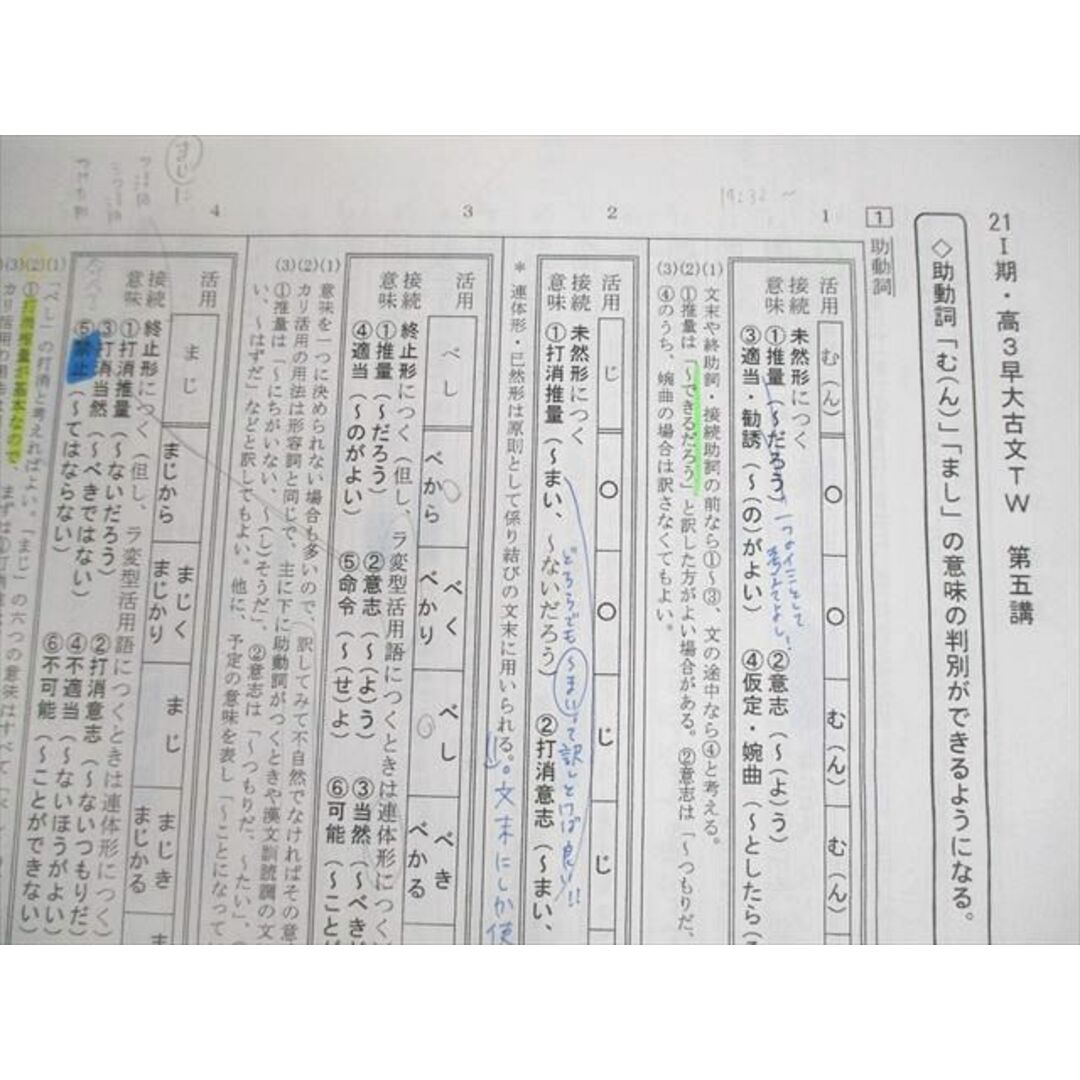 21Ⅰ期・高3早大古文TW 第五講
◇助動詞「む(ん)」「まし」の意味の判別ができるようになる。
1 助動詞
19:32 ~
1
活用 む(ん) ○ ○ む(ん) む(ん)
接続 未然形につく
意味 ①推量(~だろう) ②意志(~(よ)う)
③適当・勧誘(~(の)がよい) ④仮定・婉曲(~としたら(
(1) 文末や終助詞・接続助詞の前なら①~③、文の途中なら④と考える。
(2) ①推量は「~できるだろう」と訳した方がよい場合がある。②意志は「~つもりだ、
(3) ④のうち、婉曲の場合は訳さなくてもよい。
2
活用 じ ○ ○ じ じ
接続 未然形につく
意味 ①打消推量(~まい、~ないだろう) ②打消意志(~まい、
どちらでも~まいって訳しとけば良い!!
* 連体形・已然形は原則として係り結びの文末に用いられる。
。文末にしか使
3
活用 べし べから べく べかり べし べき べかる
接続 終止形につく(但し、ラ変型活用語につくときは連体形につく
意味 ①推量(~だろう) ②意志(~(よ)う) ③当然(~べき
④適当(~のがよい) ⑤命令(~(せ)よ) ⑥可能(~こと
(1) 意味を一つに決められない場合も多いので、訳してみて不自然でなければその意
(2) カリ活用の用法は形容詞と同じで、主に下に助動詞がつくときや漢文訓読調の文
(3) ①推量は「~にちがいない、~(し)そうだ」、②意志は「~つもりだ、~たい」、
い、~はずだ」などと訳してもよい。他に、予定の意味を表し「~ことになってい
4
まじに
活用 まじ まじから まじく まじかり まじ まじき まじかる
接続 終止形につく(但し、ラ変型活用語につくときは連体形につく)
意味 ①打消推量(~ないだろう) ②打消意志(~ないつもりだ)
③打消当然(~べきではない) ④不適当(~ないほうがよい)
⑤禁止(~てはならない) ⑥不可能(~ことができない)
(1) 「べし」の打消と考えればよい。「まじ」の六つの意味はすべて
(2) ①打消推量が基本なので、まずは①打消
(3) カリ活用の用法